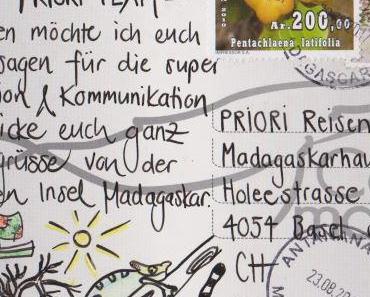 PRIORI TEAM
en möchte ich euch
sagen für die super
ion & Kommunikation
icke euch ganz
grüsse von der
en Insel Madagaskar.
2010
Ar.200,00
Pentachlaena latifolia
DAGASCAR
PRIORI Reisen
Madagaskarhau
Holeestrasse
4054 Basel
CH
ANTANANA
23.08.20